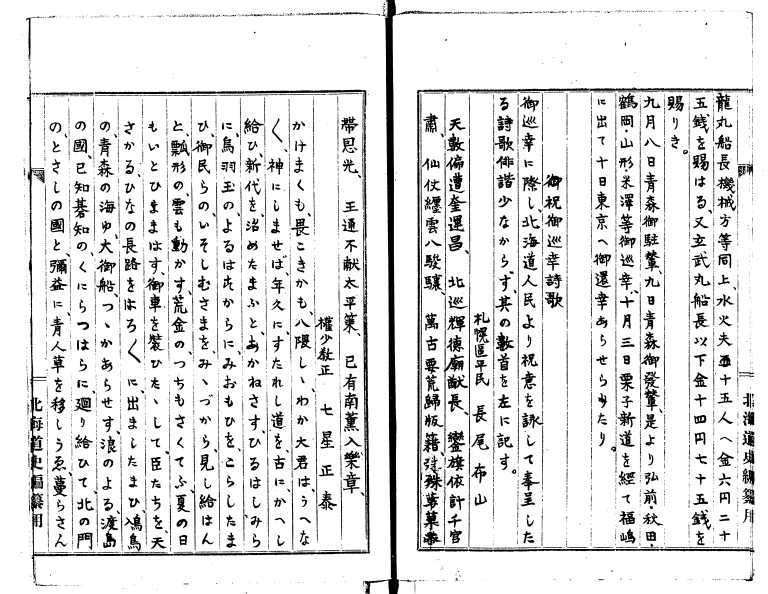 龍丸船長機械方等同上、水火夫五十五人ヘ金六円二十
五銭を賜はる、又玄武丸船長以下金十四円七十五銭を
賜りき。
九月八日青森御駐輦、九日青森御發輦、是より弘前・秋田・
鶴岡・山形・米澤等御巡幸、十月三日栗子新道を經て福嶋
に出て十日東京へ御還幸あらせらゆたり。
御祝御巡幸詩歌
御巡幸に際し北海道人民より祝意を詠して奉呈した
る詩歌俳諧少なからす、其の數首を左に記す。
札幌區平民 長尾布山
天數偏遭奎運昌、 北巡輝德廟猷長、 鑾旗依計千官
肅、 仙仗纒雲八駿驤、 萬古要荒歸版籍、 殊
帶恩光、 王通不献太平策、 已有南薫入樂章、
權少敎正 七星正泰
かけまくも、畏こきかも、八隈しゝわか大君は、うへな
く、神にしませば、年久にすたれし道を、古にかへし
給ひ、新代を、治めたまふと、あかねさす、ひるはしみら
に、烏羽玉のよるはすからに、みおもひを、こらしたま
ひ、御民らの、いそしむさまを、みゝづから、見し給はん
と、瓢形の、雲も動かす、荒金の、つちもさくてふ、夏の日
もいとひままはす、御車を裝ひたゝして、臣たちを、天
さかるひなの長路をはろ〲に出ましたまひ、鳥
の、青森の海ゆ、大御船、つゝかあらせす、浪のよる、渡島
の國、已知碁知の、くにらつはらに、廻り給ひて、北の門
のとさしの國と、彌益に、青人草を移しうゑ、蔓らさん
北海道史編纂用
北海道史編纂用